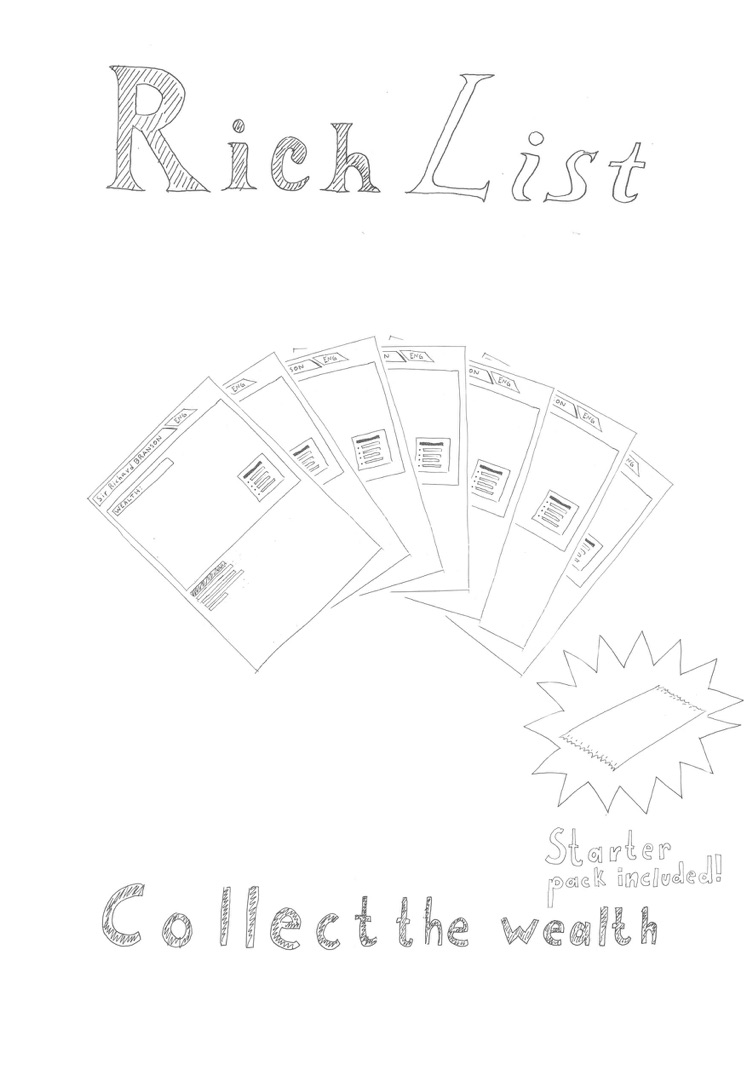 Rich List
Sir Richard BRANSON ENG
WEALTH:
ENG
SON ENG
N ENG
SON ENG
ON ENG
ENG
Starter
pack included!
Collect the wealth